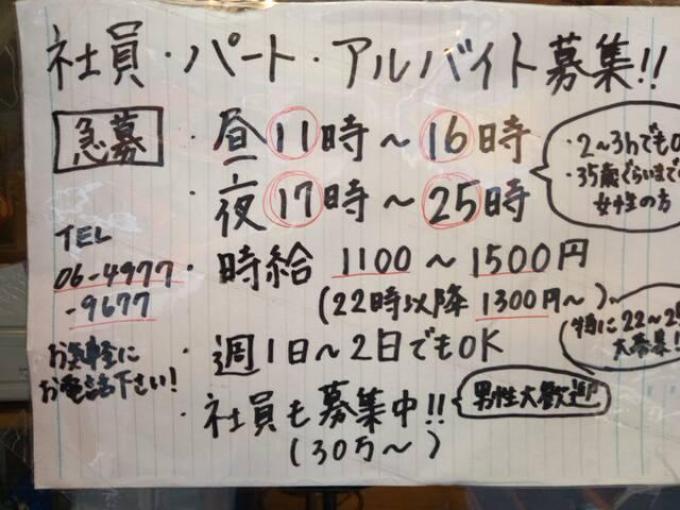 社員・パート・アルバイト募集!!
急募
・昼11時～16時
・夜17時～25時
・2～3hでもO
・35歳ぐらいまで
女性の方
TEL
06-4977
-9677
お気軽に
お電話下さい!
・時給 1100～1500円
(22時以降 1300円～)
特に22～2
大募集!!
・週1日～2日でもOK
・社員も募集中!!
(30万～)
男性大歓迎